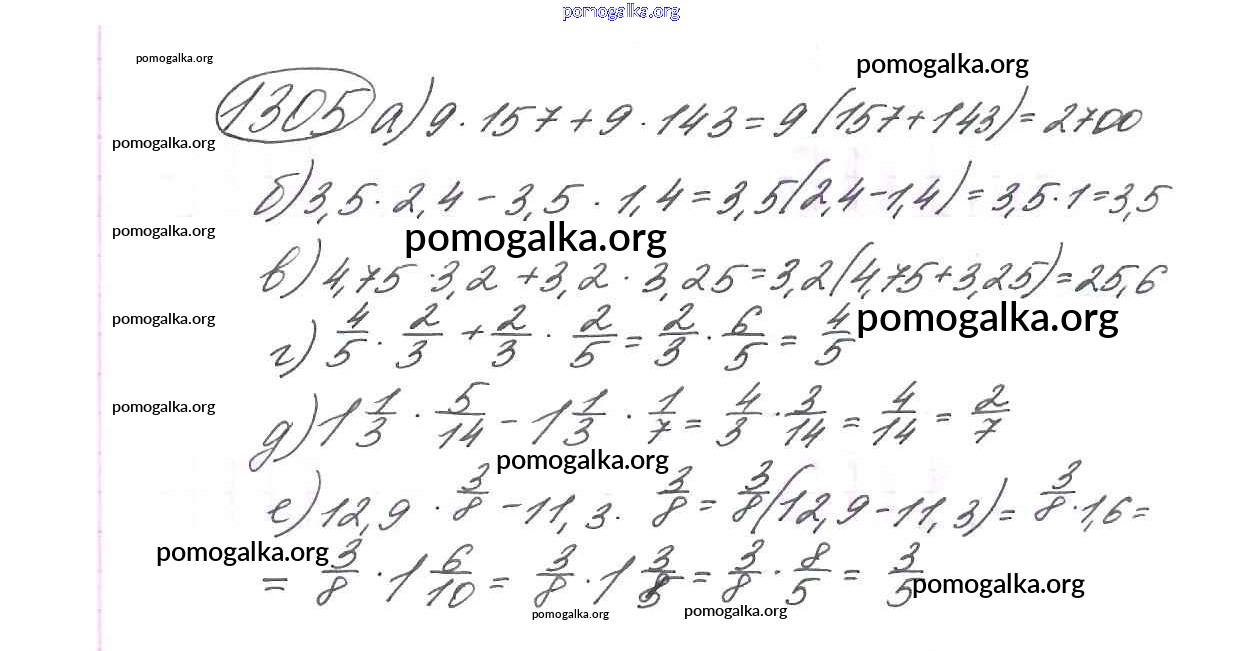 pomogalka.org
pomogalka.org
pomogalka.org
1305 а) 9 · 157 + 9 · 143 = 9 (157 + 143) = 2700
pomogalka.org
б) 3,5 · 2,4 - 3,5 · 1,4 = 3,5 (2,4 - 1,4) = 3,5 · 1 = 3,5
pomogalka.org
pomogalka.org
в) 4,75 · 3,2 + 3,2 · 3,25 = 3,2 (4,75 + 3,25) = 25,6
pomogalka.org
pomogalka.org
г) 4/5 · 2/3 + 2/3 · 2/5 = 2/3 · 6/5 = 4/5
pomogalka.org
д) 1 1/3 · 5/14 - 1 1/3 · 1/7 = 4/3 · 3/14 = 4/14 = 2/7
pomogalka.org
е) 12,9 · 3/8 - 11,3 · 3/8 = 3/8 (12,9 - 11,3) = 3/8 · 1,6 =
pomogalka.org
= 3/8 · 1 6/10 = 3/8 · 1 3/5 = 3/8 · 8/5 = 3/5
pomogalka.org
pomogalka.org
pomogalka.org